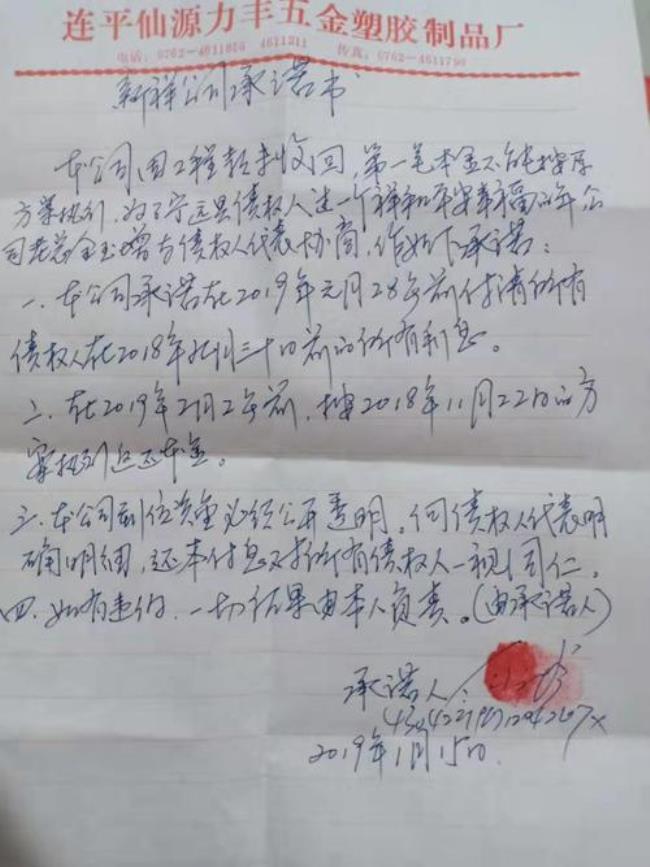 连平仙源力丰五金塑胶制品厂
电话：0762-4611856 4611311 传真：0762-4611798
新祥公司承诺书
本公司因工程款未收回，第一笔本金不能按原
方案执行，为了宁远县债权人过一个祥和平安幸福的年公
司老总全玉增与债权人代表协商，作如下承诺：
一、本公司承诺在2019年元月28号前付清所有
债权人在2018年九月三十日前的所有利息。
二、在2019年2月2号前，按2018年11月22日的方
案执行返还本金。
三、本公司到位资金必须公开透明。向债权人代表明
确明细，还本付息及对所有债权人一视同仁。
四、如有违约，一切后果由本人负责。（由承诺人）
承诺人：
2019年1月15日